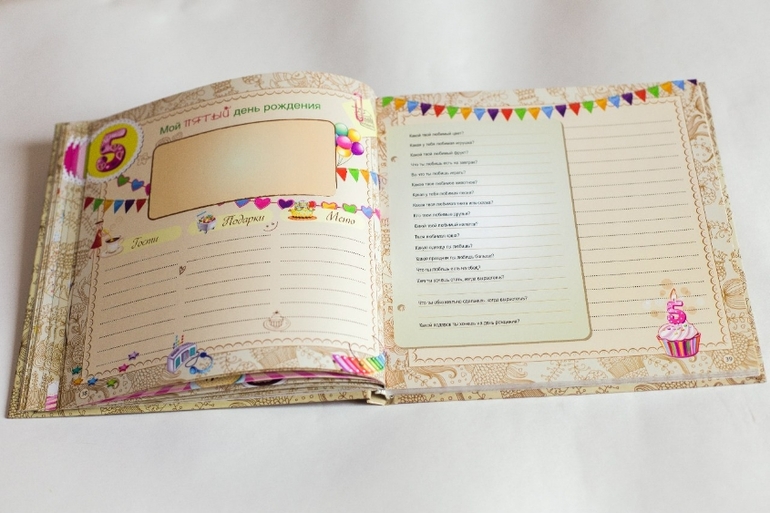 5
Мой пятый день рождения
Гости
Подарки
Меню
Какой твой любимый цвет?
Какая у тебя любимая игрушка?
Какой твой любимый фрукт?
Что ты любишь есть на завтрак?
Во что ты любишь играть?
Какое твоё любимое животное?
Какая у тебя любимая песня?
Какая твоя любимая
Кто твои любимые друзья?
Какой твой любимый напиток?
Твоя любимая каша?
Какую одежду ты любишь?
Какой праздник ты любишь больше?
Что ты любишь есть на обед?
Кем ты хочешь стать, когда вырастешь?
Что ты обязательно сделаешь, когда вырастешь?
Какой подарок ты хочешь на день рождения?
5